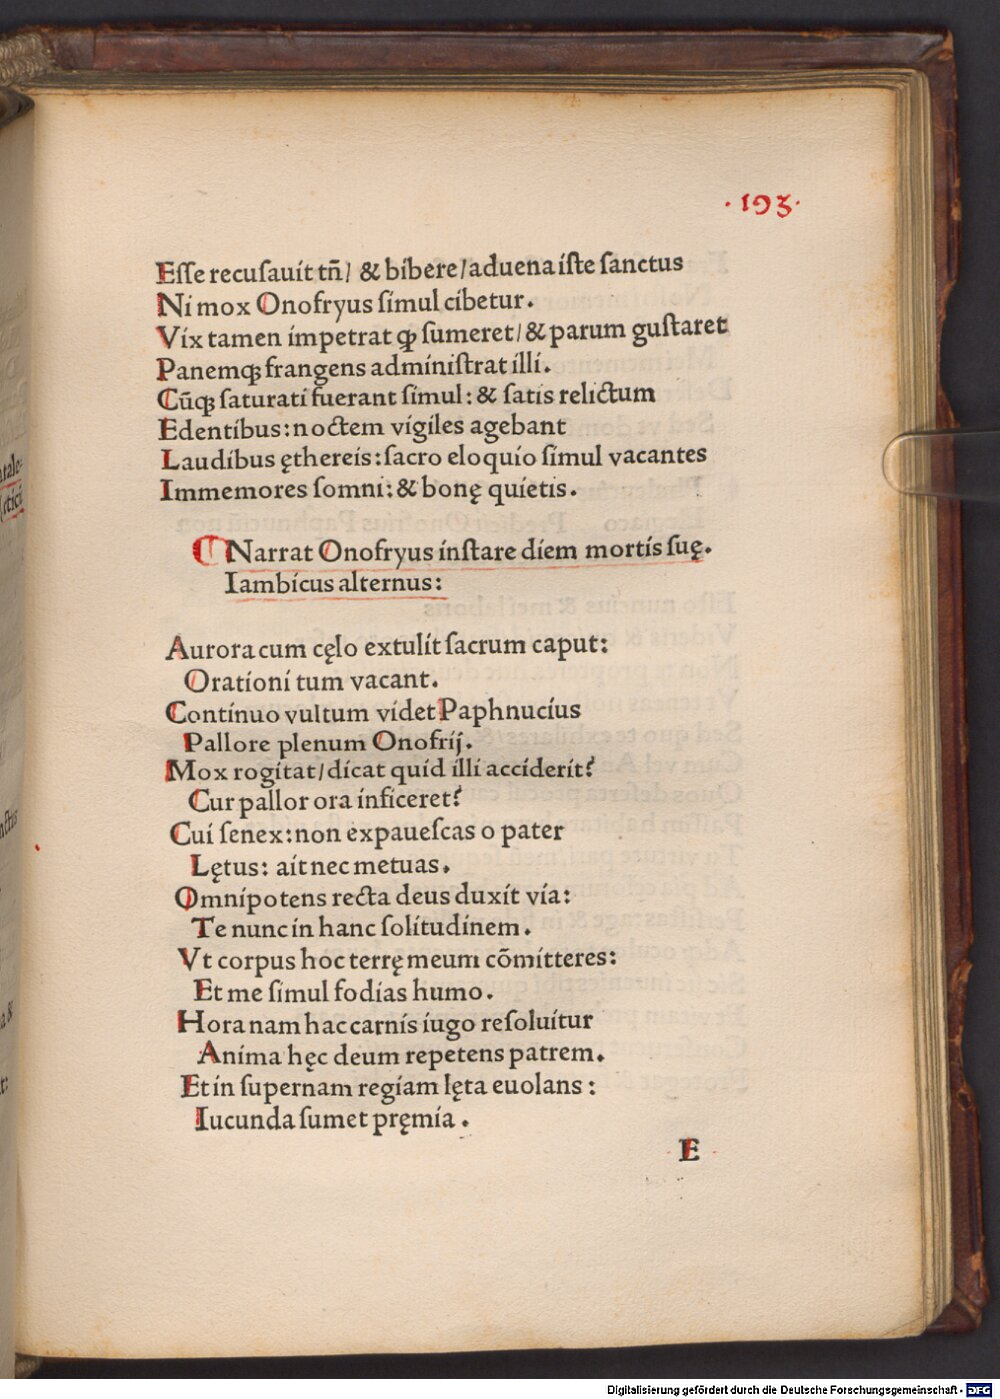 ·193·
Eſſe recuſauit tñ/ & bibere/aduena iſte ſanctus
Ni mox Onofryus ſimul cibetur.
Vix tamen impetrat ꝙ ſumeret/& parum guſtaret
Panemqꝫ frangens adminiſtrat illi.
Cūqꝫ ſaturati fuerant ſimul: & ſatis relictum
Edentibus: noctem vigiles agebant
Laudibus ęthereis: ſacro eloquio ſimul vacantes
Immemores ſomni: & bonę quietis.
⸿ Narrat Onofryus inſtare diem mortis ſuę.
Iambicus alternus:
Aurora cum cęlo extulit ſacrum caput:
Orationi tum vacant.
Continuo vultum videt Paphnucius
Pallore plenum Onofrij.
Mox rogitat/dicat quid illi acciderit?
Cur pallor ora inficeret?
Cui ſenex: non expaueſcas o pater
Lętus: ait nec metuas.
Omnipotens recta deus duxit via:
Te nunc in hanc ſolitudinem.
Vt corpus hoc terrę meum cōmitteres:
Et me ſimul fodias humo.
Hora nam hac carnis iugo reſoluitur
Anima hęc deum repetens patrem.
Et in ſupernam regiam lęta euolans:
Iucunda ſumet pręmia.
E
Digitalisierung gefördert durch die Deutsche Forschungsgemeinschaft - DFG